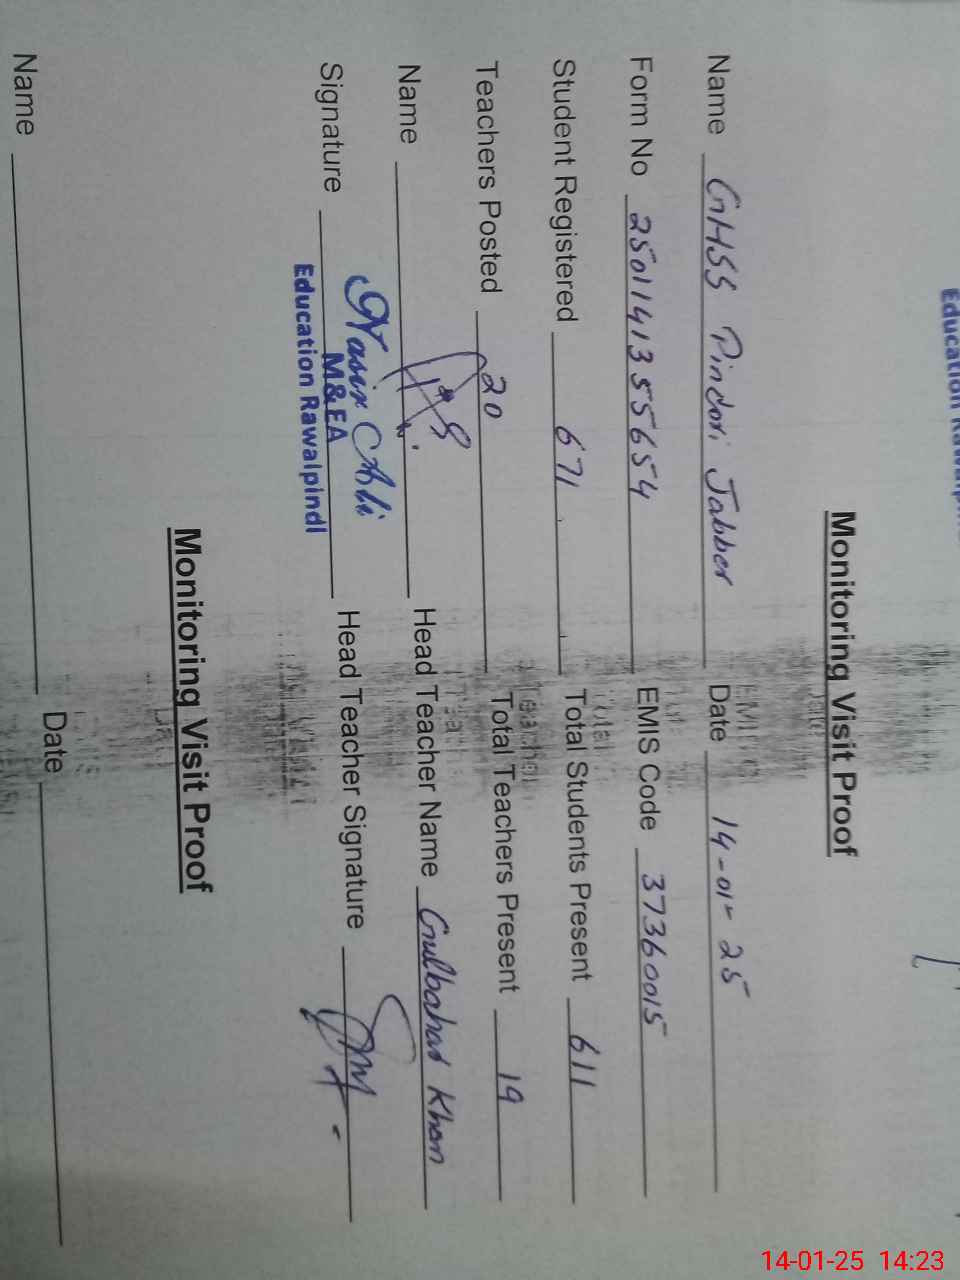 Education Rawalpindi
Monitoring Visit Proof
Name GHSS Pindori Jabber Date 14-01-25
Form No 2501141355654 EMIS Code 37360015
Student Registered 671 Total Students Present 611
Teachers Posted 20 Total Teachers Present 19
Name Head Teacher Name Gulbahar Khan
Signature Nasir Ali Head Teacher Signature
M&EA
Education Rawalpindi
Monitoring Visit Proof
Name Date
14-01-25 14:23